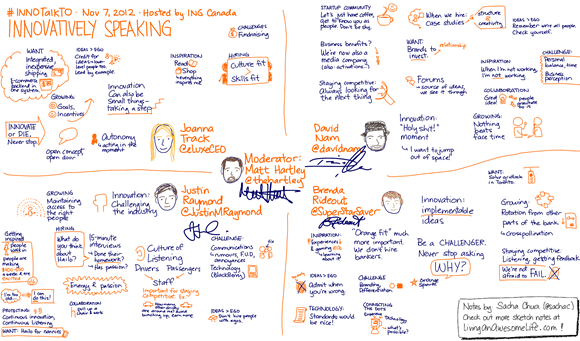 #INNOTalkTO - Nov 7, 2012 - Hosted by ING Canada
INNOVATIVELY SPEAKING
CHALLENGE:
Fundraising
WANT:
Integrated,
inexpensive
shipping
E-commerce
backend in
one system.
IDEAS > EGO
Credit for
ideas = low-
level people
too.
Lead by example.
INSPIRATION
Read
Shop
everything
inspires me!
HIRING:
Culture fit
>
Skills fit
GROWING:
Goals,
Incentives
Innovation:
Can also be
Small things -
taking a step
INNOVATE
or DIE.
Never stop!
Open concept,
open door
Autonomy
acting in the
moment
Joanna
Track
@eLuxeCEO
STARTUP COMMUNITY
Let's just have coffee,
get to know you as
people. Don't be shy.
When we hire:
Case studies
structure
&
creativity
IDEAS > EGO
Remember we're all people.
Check yourself.
Business benefits?
We're now also a
media company
(also: activations.)
WANT:
Brands to
invest.
relationship
INSPIRATION
When I'm not working,
I'm not working.
CHALLENGE:
Personal
balance, time
Business:
perception
Staying competitive:
Always looking for
the next thing
Forums
source of ideas,
we see it through
COLLABORATION
Great people
gravitate to it
David
Nam
@davidnam
Innovation:
"Holy shit!"
moment
I want to jump
out of space!
GROWING:
Nothing
beats
face time
Moderator:
Matt Hartley
@thehartley
GROWING
Maintaining
access to
the right
people
Innovation:
Challenging
the industry
Justin
Raymond
@JustinMRaymond
Getting
inspired
HIRING
What do you
think about
Hailo?
15-minute
interviews
Done their
homework?
Has passion?
Energy & passion
I can
do this!
Culture of
Listening
Drivers Passengers
Staff
Important for staying
competitive.
CHALLENGE:
Communications
rumours, FUD,
announcements
Technology
(Blackberry)
COLLABORATION
PROTECTING
Continuous innovation,
Continuous listening
WANT: Hailo for nannies
IDEAS > EGO
Don't hire people
with egos.
Brenda
Rideout
@SuperStarSaver
Innovation:
implementable
ideas
WANT:
INSPIRATION
Experiences
learning
"Orange fit" much
more important.
We don't hire
bankers
Be a CHALLENGER.
Never stop asking
WHY?
Growing:
Rotation from other
parts of the bank
Crosspollination
Staying competitive:
Listening, getting feedback
We're not
afraid to FAIL.
IDEAS > EGO
Admit when
you're wrong.
CHALLENGE
Branding,
Differentiation
TECHNOLOGY:
Standards would
be nice!
CONNECTING
THE DOTS
Technology
what's
possible?
Notes by Sacha Chua (@sachac)
Check out more sketch notes at
LivingAnAwesomeLife.com!